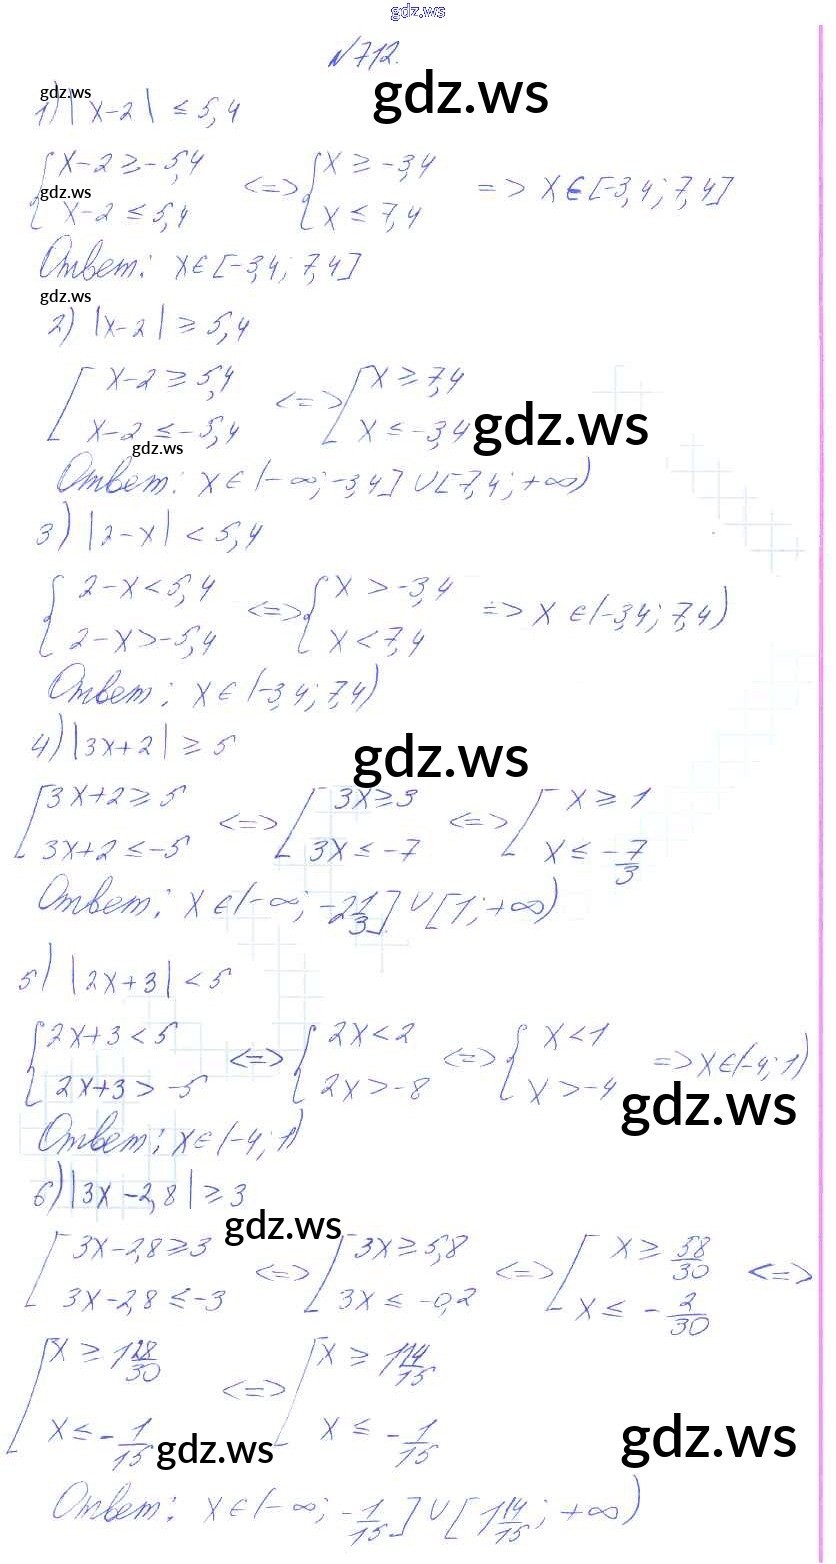 gdz.ws
№712.
gdz.ws
gdz.ws
1) |x-2| ≤ 5,4
{ x-2 ≥ -5,4 <=> { x ≥ -3,4 => x ∈ [-3,4; 7,4]
gdz.ws
x-2 ≤ 5,4 x ≤ 7,4
Ответ: x ∈ [-3,4; 7,4]
gdz.ws
2) |x-2| ≥ 5,4
[ x-2 ≥ 5,4 <=> [ x ≥ 7,4
x-2 ≤ -5,4 x ≤ -3,4
gdz.ws
gdz.ws
Ответ: x ∈ (-∞; -3,4] ∪ [7,4; +∞)
3) |2-x| < 5,4
{ 2-x < 5,4 <=> { x > -3,4 => x ∈ (-3,4; 7,4)
2-x > -5,4 x < 7,4
Ответ: x ∈ (-3,4; 7,4)
4) |3x+2| ≥ 5
gdz.ws
[ 3x+2 ≥ 5 <=> [ 3x ≥ 3 <=> [ x ≥ 1
3x+2 ≤ -5 3x ≤ -7 x ≤ -7/3
Ответ: x ∈ (-∞; -2 1/3] ∪ [1; +∞)
5) |2x+3| < 5
{ 2x+3 < 5 <=> { 2x < 2 <=> { x < 1 => x ∈ (-4; 1)
2x+3 > -5 2x > -8 x > -4
gdz.ws
Ответ: x ∈ (-4; 1)
6) |3x-2,8| ≥ 3
gdz.ws
[ 3x-2,8 ≥ 3 <=> [ 3x ≥ 5,8 <=> [ x ≥ 58/30 <=>
3x-2,8 ≤ -3 3x ≤ -0,2 x ≤ -2/30
[ x ≥ 1 28/30 <=> [ x ≥ 1 14/15
x ≤ -1/15 x ≤ -1/15
gdz.ws
gdz.ws
Ответ: x ∈ (-∞; -1/15] ∪ [1 14/15; +∞)